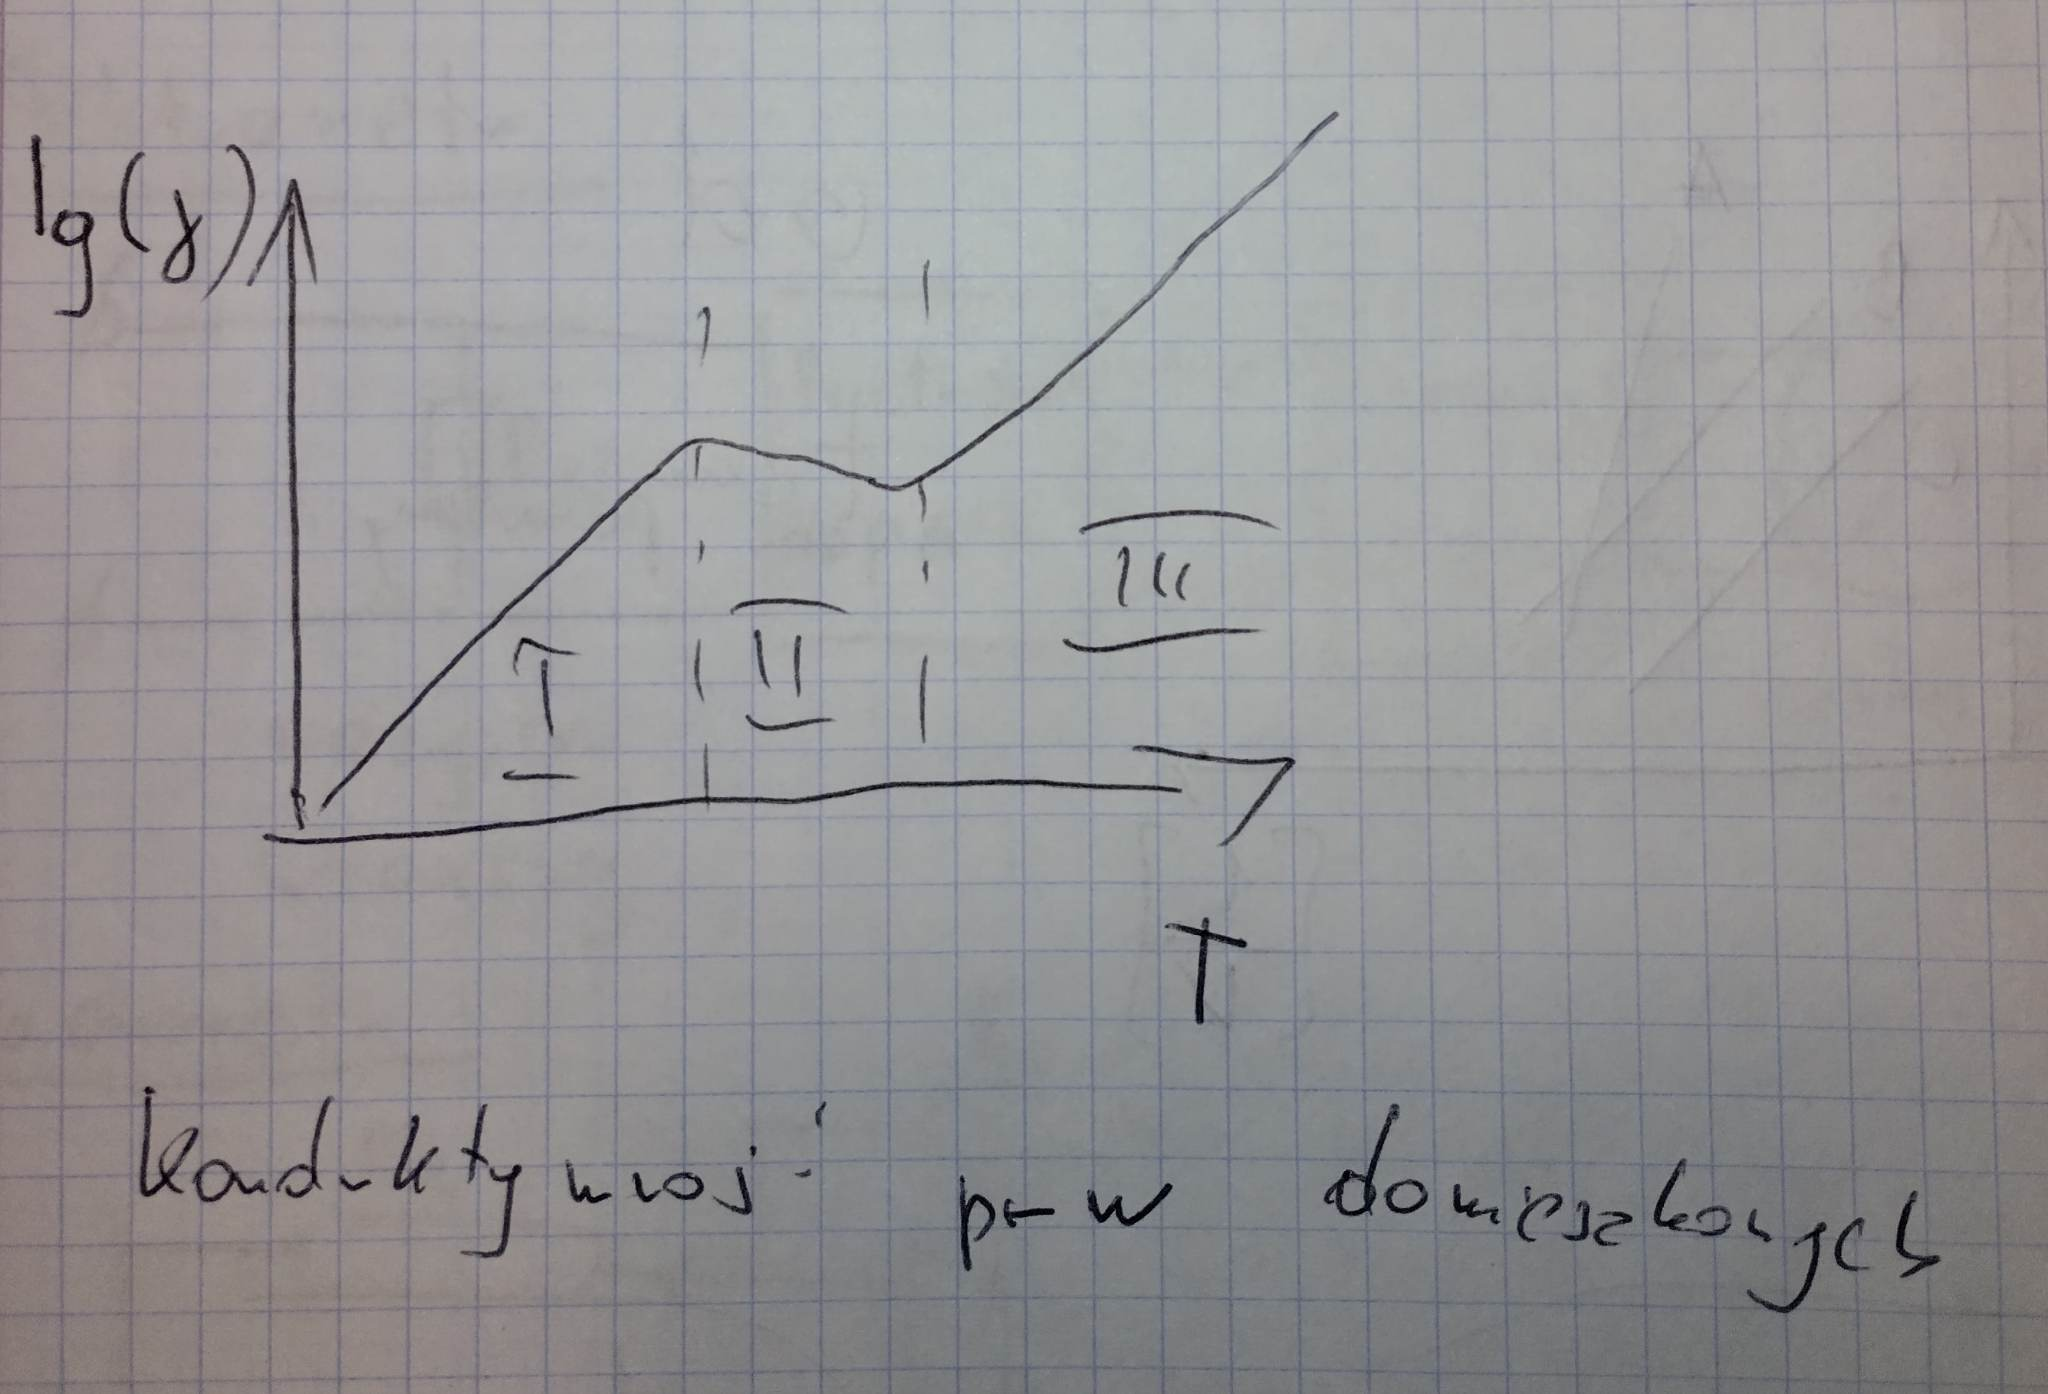 lg(γ)
I
II
III
T
konduktywność p-w domieszkowych